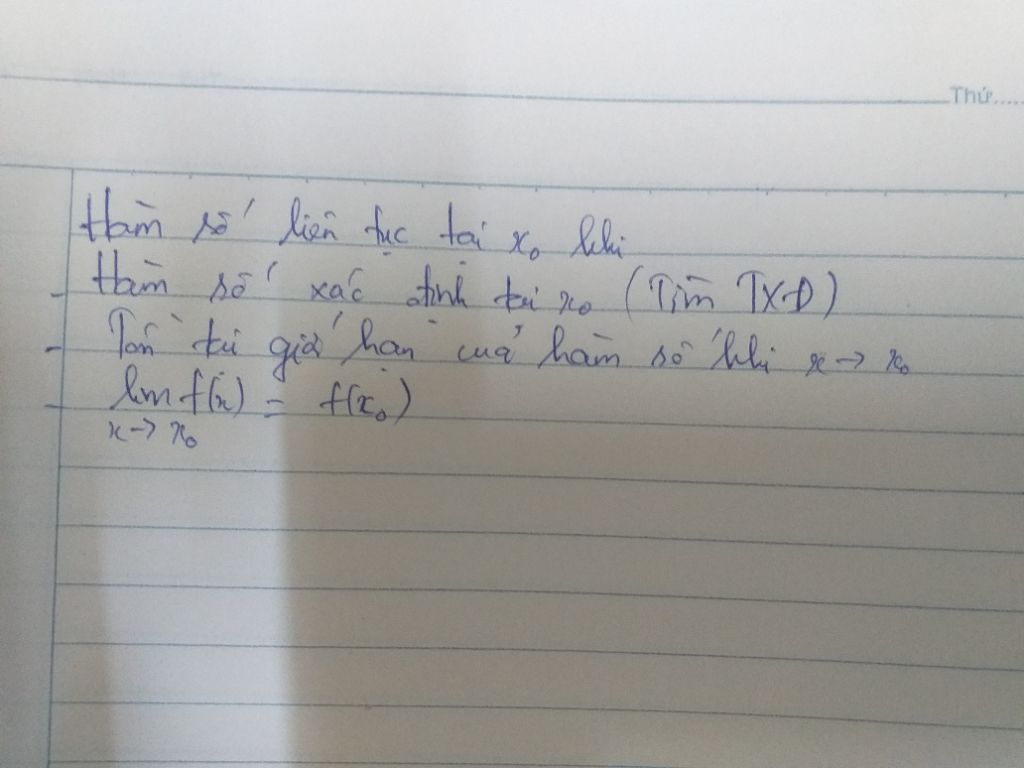 Thứ.....
Hàm số liên tục tại x₀ khi
- Hàm số xác định tại x₀ (Tìm TXĐ)
- Tồn tại giới hạn của hàm số khi x → x₀
- lim f(x) = f(x₀)
x → x₀